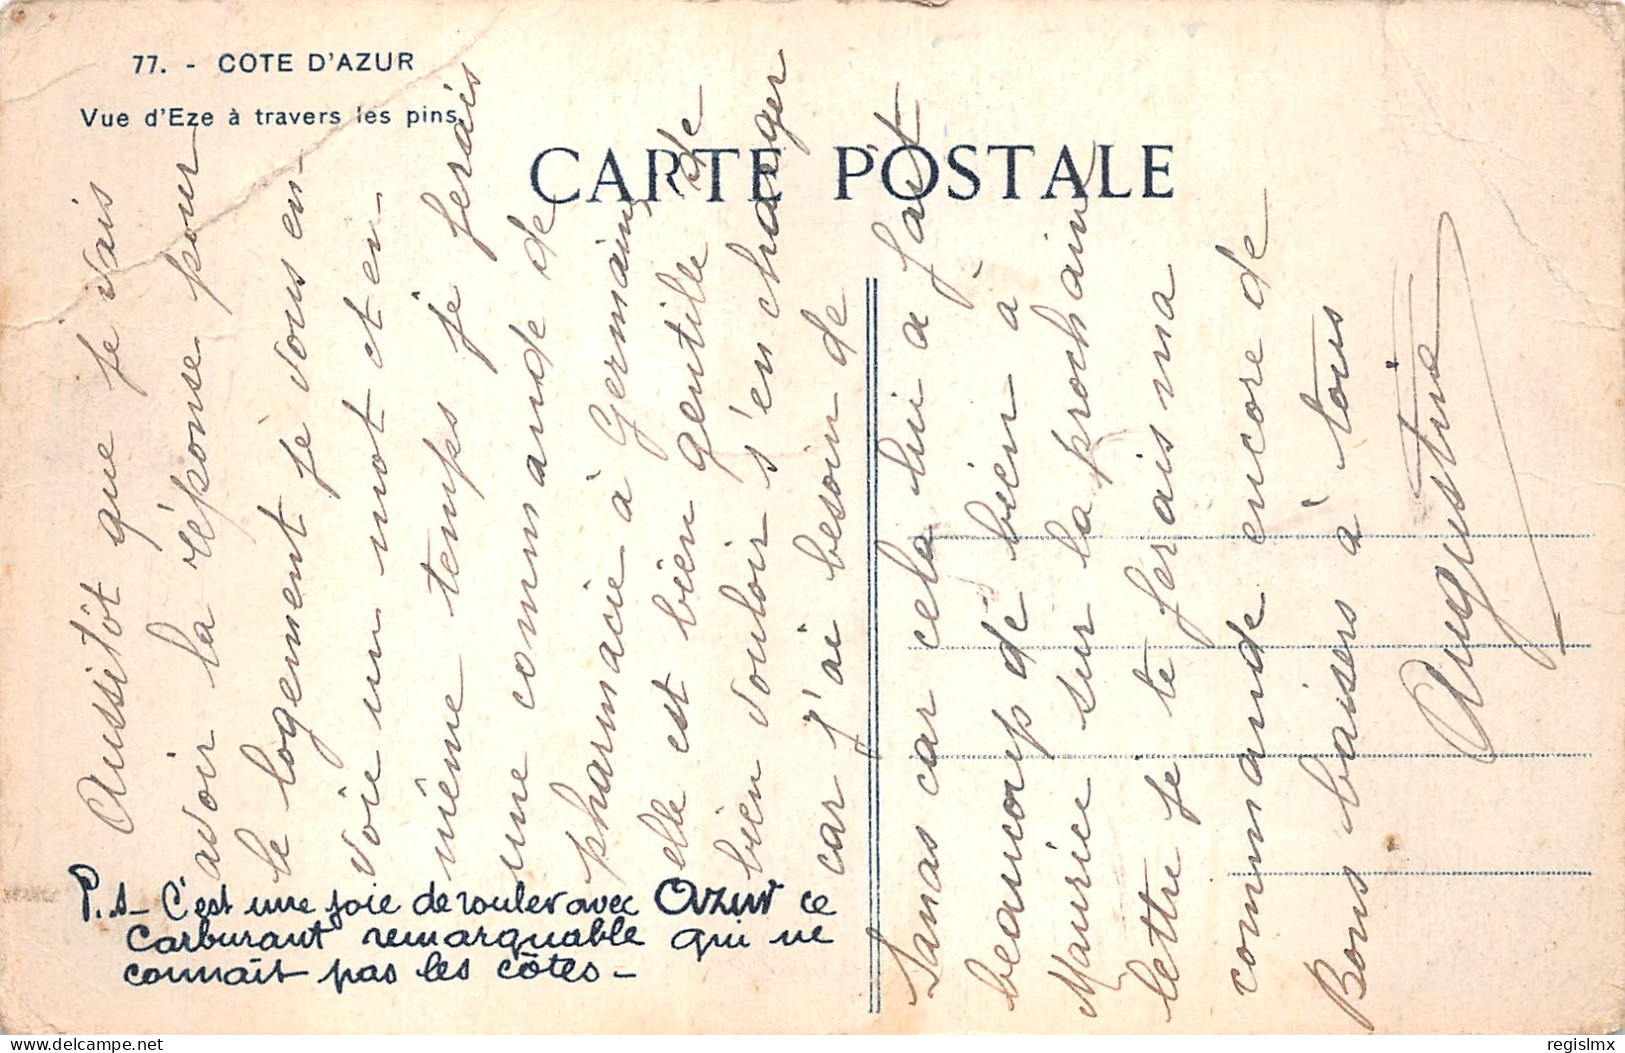 77. - COTE D'AZUR
Vue d'Eze à travers les pins.
CARTE POSTALE
Aussitôt que je vais
avoir la réponse pour
le logement je vous en-
voie un mot et en
même temps je ferais
une commande de
pharmacie à Germaine, de
elle est bien gentille de
bien vouloir s'en charger
car j'ai besoin de
Sanas car cela lui a fait
beaucoup de bien à
Maurice sur la prochain
lettre je te ferais ma
commande encore de
Bons baisers à tous
Augustine
P.S - C'est une joie de rouler avec AZUR ce
Carburant remarquable qui ne
connait pas les côtes -
delcampe.net
regislmx